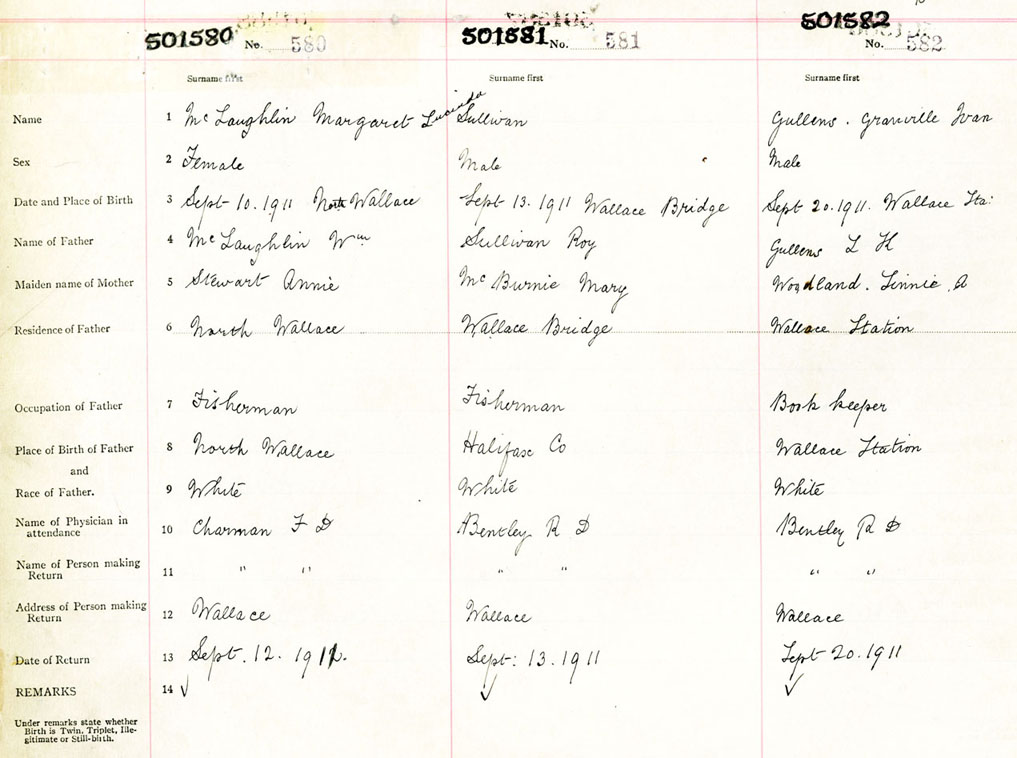 501580 No. 580 501581 No. 581 501582 No. 582
Surname first Surname first Surname first
Name 1 McLaughlin Margaret Lucinda Sullivan Gullens . Granville Ivan
Sex 2 Female Male Male
Date and Place of Birth 3 Sept 10. 1911 North Wallace Sept 13. 1911 Wallace Bridge Sept 20. 1911. Wallace Sta:
Name of Father 4 McLaughlin Wm Sullivan Roy Gullens L H
Maiden name of Mother 5 Stewart Annie McBurnie Mary Woodland. Linnie . A
Residence of Father 6 North Wallace Wallace Bridge Wallace Station
Occupation of Father 7 Fisherman Fisherman Book keeper
Place of Birth of Father 8 North Wallace Halifax Co Wallace Station
and
Race of Father. 9 White White White
Name of Physician in attendance 10 Charman F D Bentley R D Bentley R D
Name of Person making Return 11 " " " " " "
Address of Person making Return 12 Wallace Wallace Wallace
Date of Return 13 Sept. 12. 1911. Sept: 13. 1911 Sept 20. 1911
REMARKS 14 ✓ ✓ ✓
Under remarks state whether
Birth is Twin, Triplet, Ille-
gitimate or Still-birth.